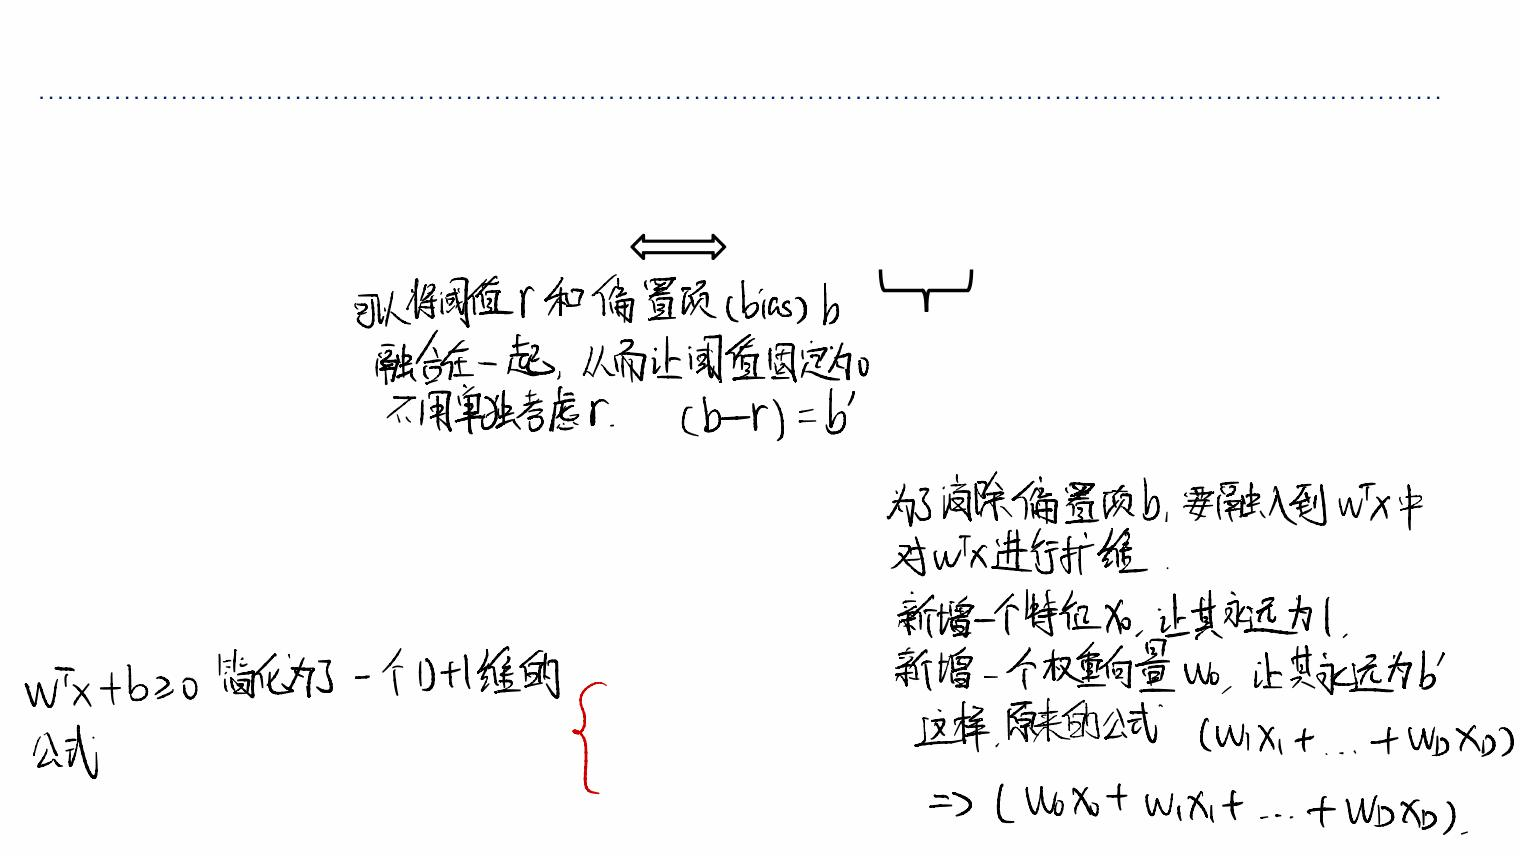 可以将阈值r和偏置项(bias) b
融合在一起, 从而让阈值固定为0
不用单独考虑r. (b-r)=b'
为了消除偏置项b, 要融入到wᵀx中
对wᵀx进行扩维.
新增一个特征x₀, 让其永远为1,
新增一个权重向量w₀, 让其永远为b'
这样, 原来的公式 (w₁x₁+...+w_Dx_D)
=> (w₀x₀+w₁x₁+...+w_Dx_D).
wᵀx+b≥0 简化为了一个D+1维的
公式